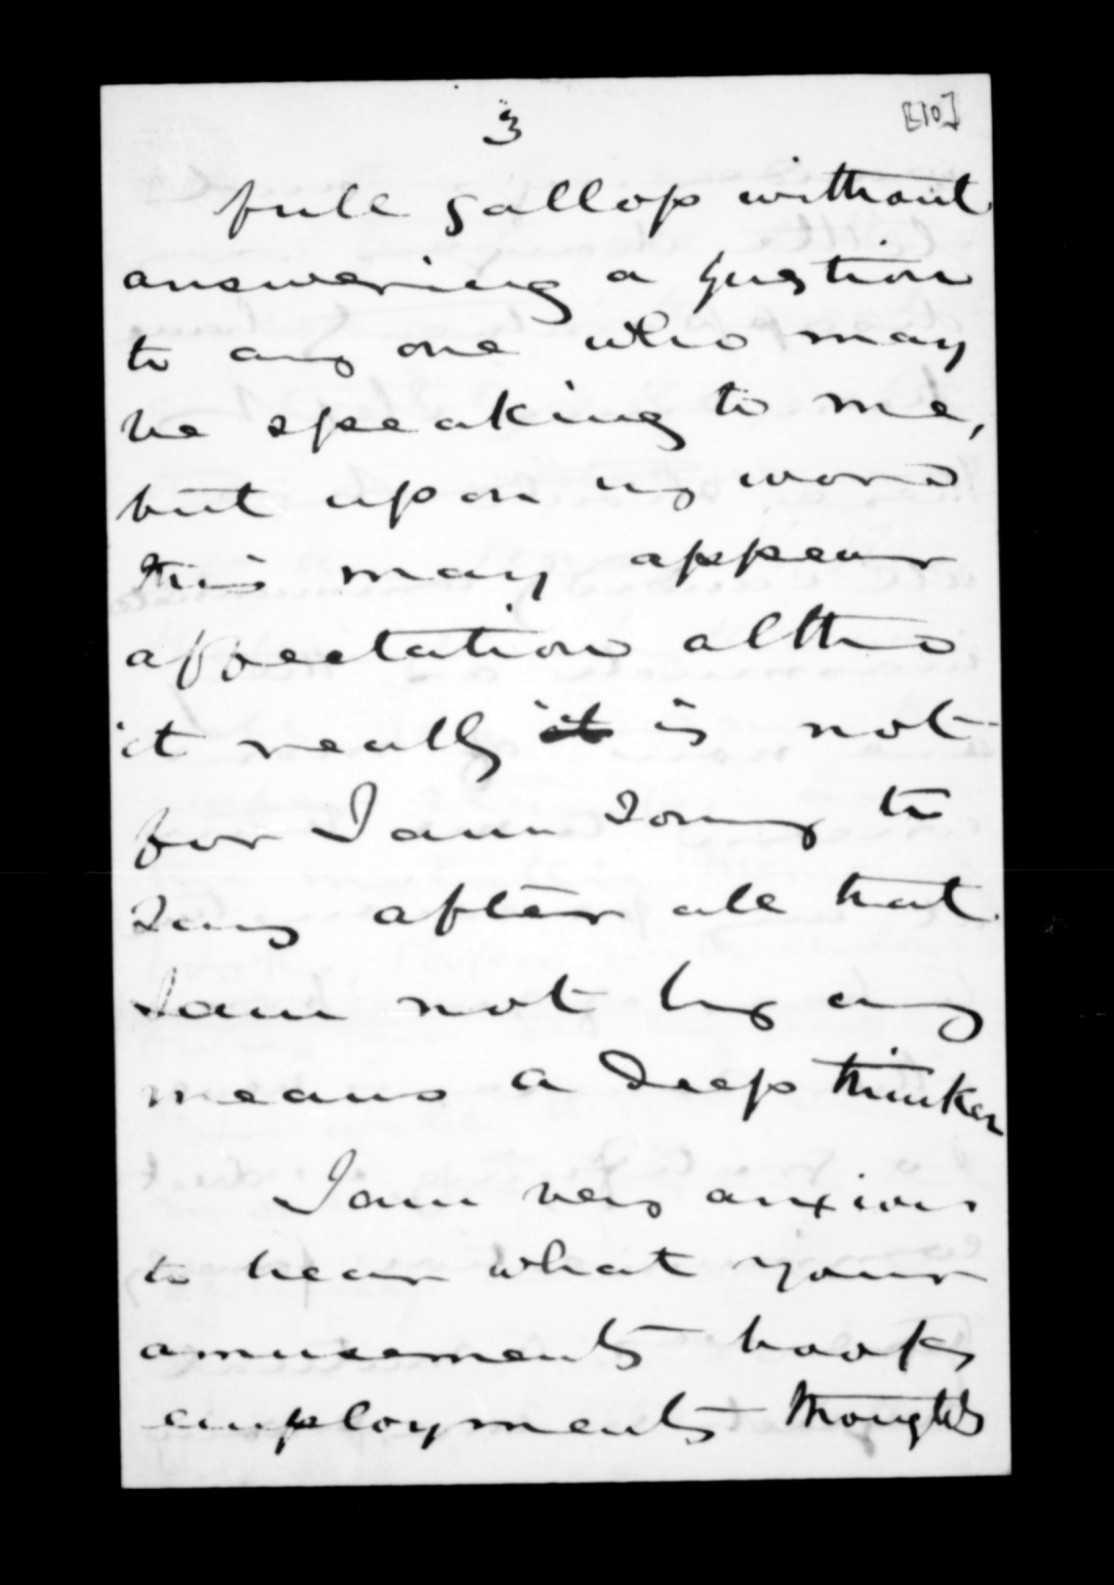 3
[10]
full gallop without
answering a question
to any one who may
be speaking to me,
but upon my word
this may appear
affectation altho
it really it is not
for I am sorry to
say after all that
I am not by any
means a deep thinker
I am very anxious
to hear what your
amusements books
employments thoughts